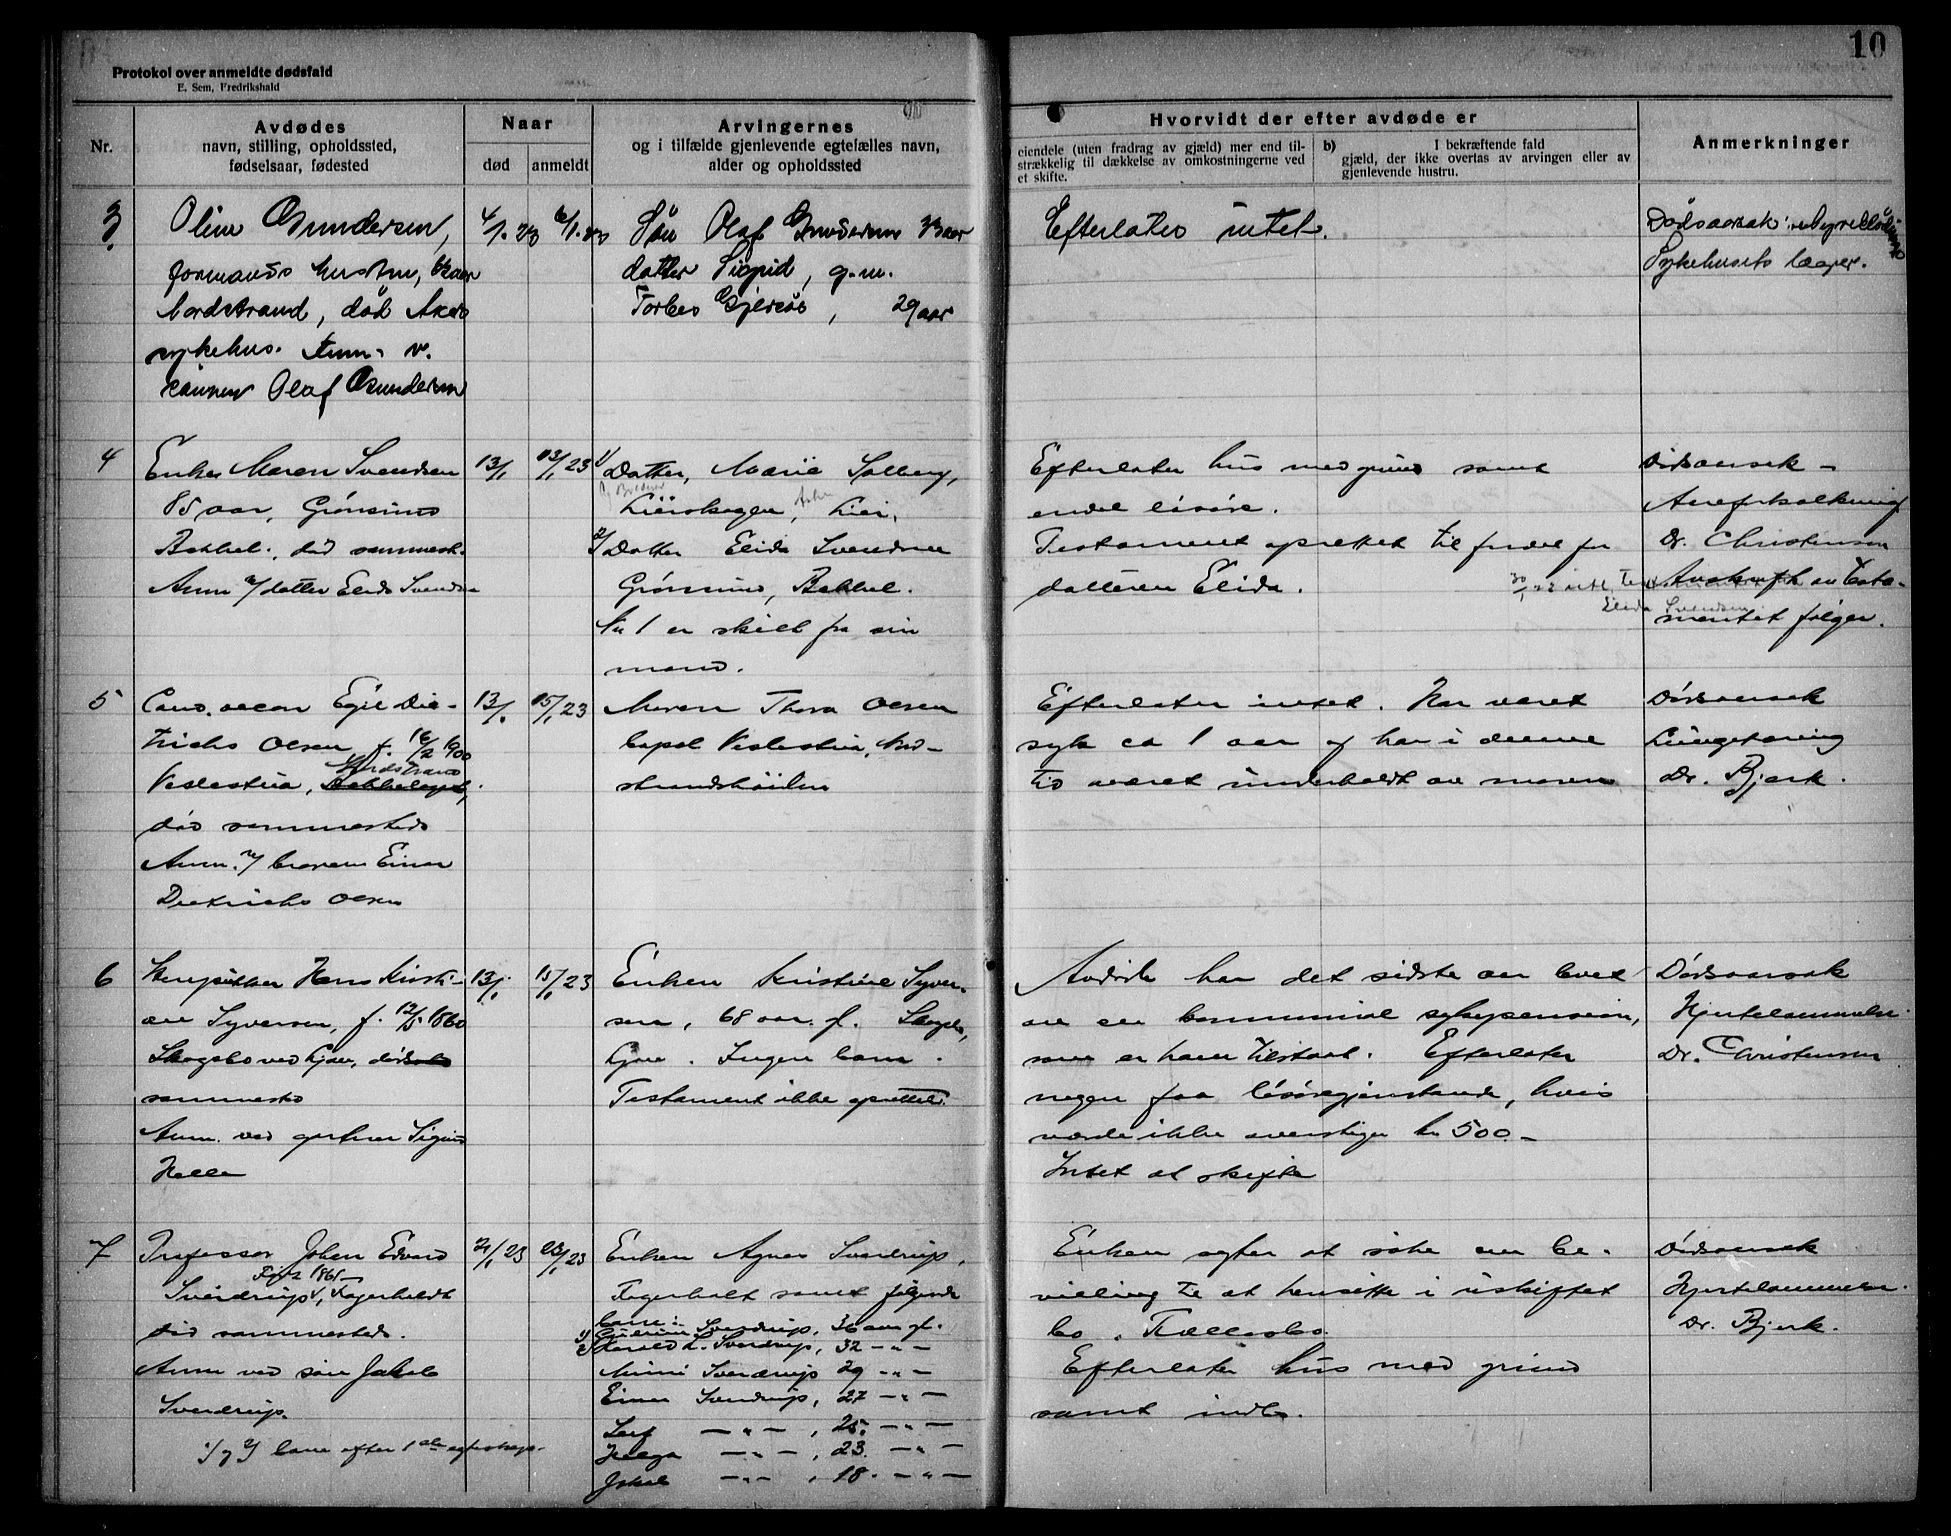 10
Protokol over anmeldte dødsfald
E. Sem, Fredrikshald
Nr.
Avdødes
navn, stilling, opholdssted,
fødselsaar, fødested
Naar
død
anmeldt
Arvingernes
og i tilfælde gjenlevende egtefælles navn,
alder og opholdssted
Hvorvidt der efter avdøde er
eiendele (uten fradrag av gjæld) mer end til-
strækkelig til dækkelse av omkostningerne ved
et skifte.
b) I bekræftende fald
gjæld, der ikke overtas av arvingen eller av
gjenlevende hustru.
Anmerkninger
3
Oline Gundersen,
formands hustru,
Nordstrand, død Akers
sykehus. Anm. v.
sønnen Olaf Gundersen
4/1. 23
6/1. 23
Søn Olaf Gundersen
datter Sigrid, g.m.
Gjersøe, 29 aar
Efterlater intet.
Dødsaarsak:
Sykehusets læger.
4
Enke Maren Svendsen
85 aar, Grønsund
Bækkel., død sammest.
Anm v/ datter Elida Svendsen
13/1
13/1 23
1/ Datter, Marie Solberg,
Lierskogen, Lier.
2/ Datter Elida Svendsen
Grønsund, Bækkel.
Nr 1 er skilt fra sin
mand.
Efterlater hus med grund samt
endel løsøre.
Testament oprettet til fordel for
datteren Elida.
Elida Svendsen
Dødsaarsak –
Aareforkalkning
Dr. Christensen
Avskrift av Testa-
mentet følger.
5
Cand. oecon Egil Die-
trichs Olsen f. 16/2 1900
Nordstrand
Veslestua, Bækkelaget,
død sammesteds
Anm. v/ broren Einar
Dietrichs Olsen
13/1
15/1 23
Moren Thora Olsen
Veslestua, Nord-
strandshøiden
Efterlater intet. Har været
syk ca 1 aar og har i denne
tid været underholdt av moren
Dødsaarsak
Lungetæring
Dr. Bjerk.
6
Hans Kristi-
an Syversen, f. 12/5 1860
Skogsbo ved Ljan, død
sammesteds
Anm. ved gartner Sigurd
Helle
13/1
15/1 23
Enken Kristine Syver-
sen, 68 aar gl. Skogsbo,
Ljan. Ingen barn.
Testament ikke oprettet.
Avdøde har det sidste aar levet
av en kommunal sykepension,
som er ham tilstaat. Efterlater
nogen faa løsøregjenstande, hvis
værdi ikke overstiger kr 500.–
Intet at skifte
Dødsaarsak
Hjertelammelse.
Dr. Christensen
7
Professor Johan Edvard
Født 1861
Sverdrup, Fagerholt
død sammesteds.
Anm ved søn Jakob
Sverdrup.
1/ og 2/ barn efter 1ste egteskap.
21/1 23
23/1 23
Enken Agnes Sverdrup,
Fagerholt samt følgende
barn:
1/ Sverdrup, 36 aar gl.
2/ Harald U. Sverdrup, 32 – " –
Mimi Sverdrup 29 – " –
Einar Sverdrup, 27 – " –
Leif – " – , 25. – " –
Helga – " – , 23. – " –
Jakob – " – , 18. – " –
Enken agter at søke om be-
villing til at hensitte i uskiftet
bo. Fællesbo.
Efterlater hus med grund
samt indbo.
Dødsaarsak
Hjertelammelse.
Dr. Bjerk.